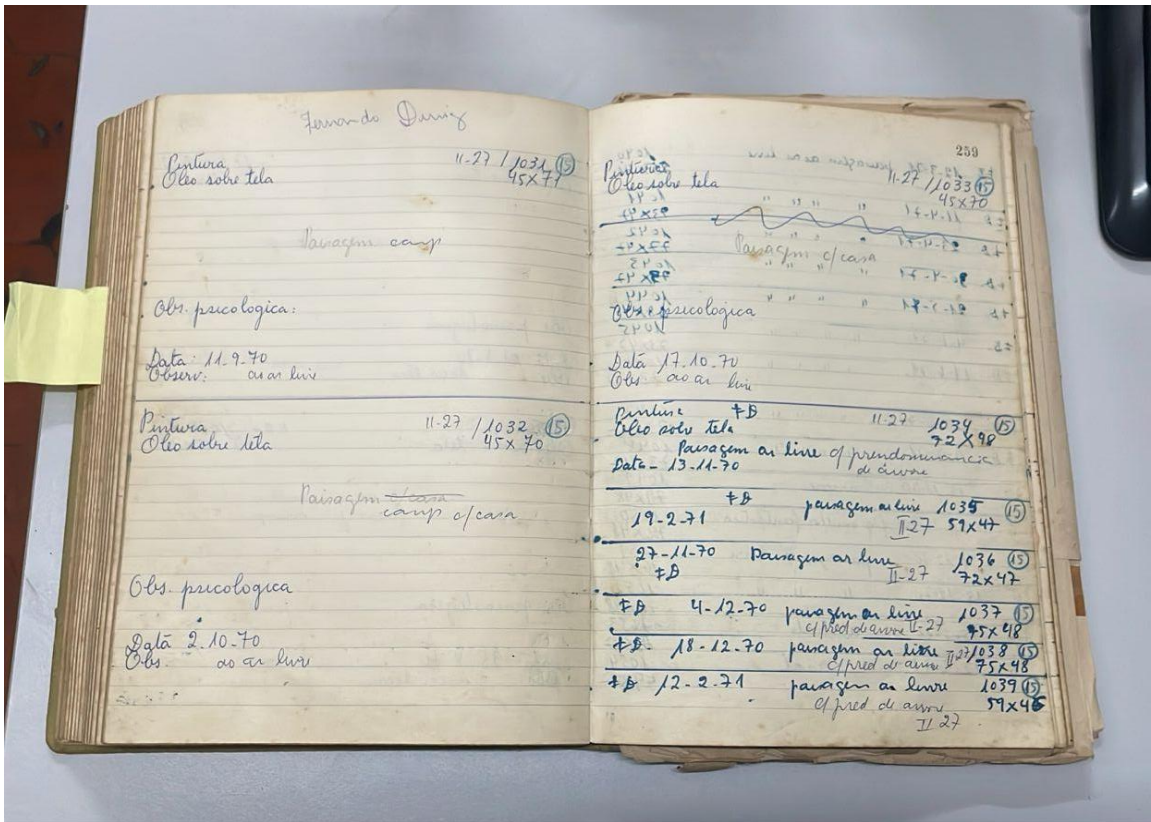 Fernando Diniz
Pintura II-27 / 1031 (15)
Oleo sobre tela 45x71
Paisagem camp
Obs. psicologica:
Data: 11-9-70
Observ: ao ar livre
Pintura II-27 / 1032 (15)
Oleo sobre tela 45x70
Paisagem c/casa
camp c/casa
Obs. psicologica
Data 2.10.70
Obs ao ar livre
259
Pintura II-27 / 1033 (15)
Oleo sobre tela 45x70
Paisagem c/casa
Obs. psicologica
Data 17.10.70
Obs ao ar livre
Pintura FD II-27 1034 (15)
Oleo sobre tela 72x98
Paisagem ar livre c/ prendominancia
de árvore
Data - 13-11-70
FD paisagem ar livre 1035 (15)
19-2-71 II-27 59x47
27-11-70 Paisagem ar livre 1036 (15)
FD II-27 72x47
FD 4-12-70 paisagem ar livre 1037 (15)
c/pred de arvore II-27 75x48
FD- 18-12-70 paisagem ar livre II 27/1038 (15)
c/pred de arvore 75x48
FD 12-2-71 paisagem ar livre 1039 (15)
c/ pred de arvore 59x46
II 27